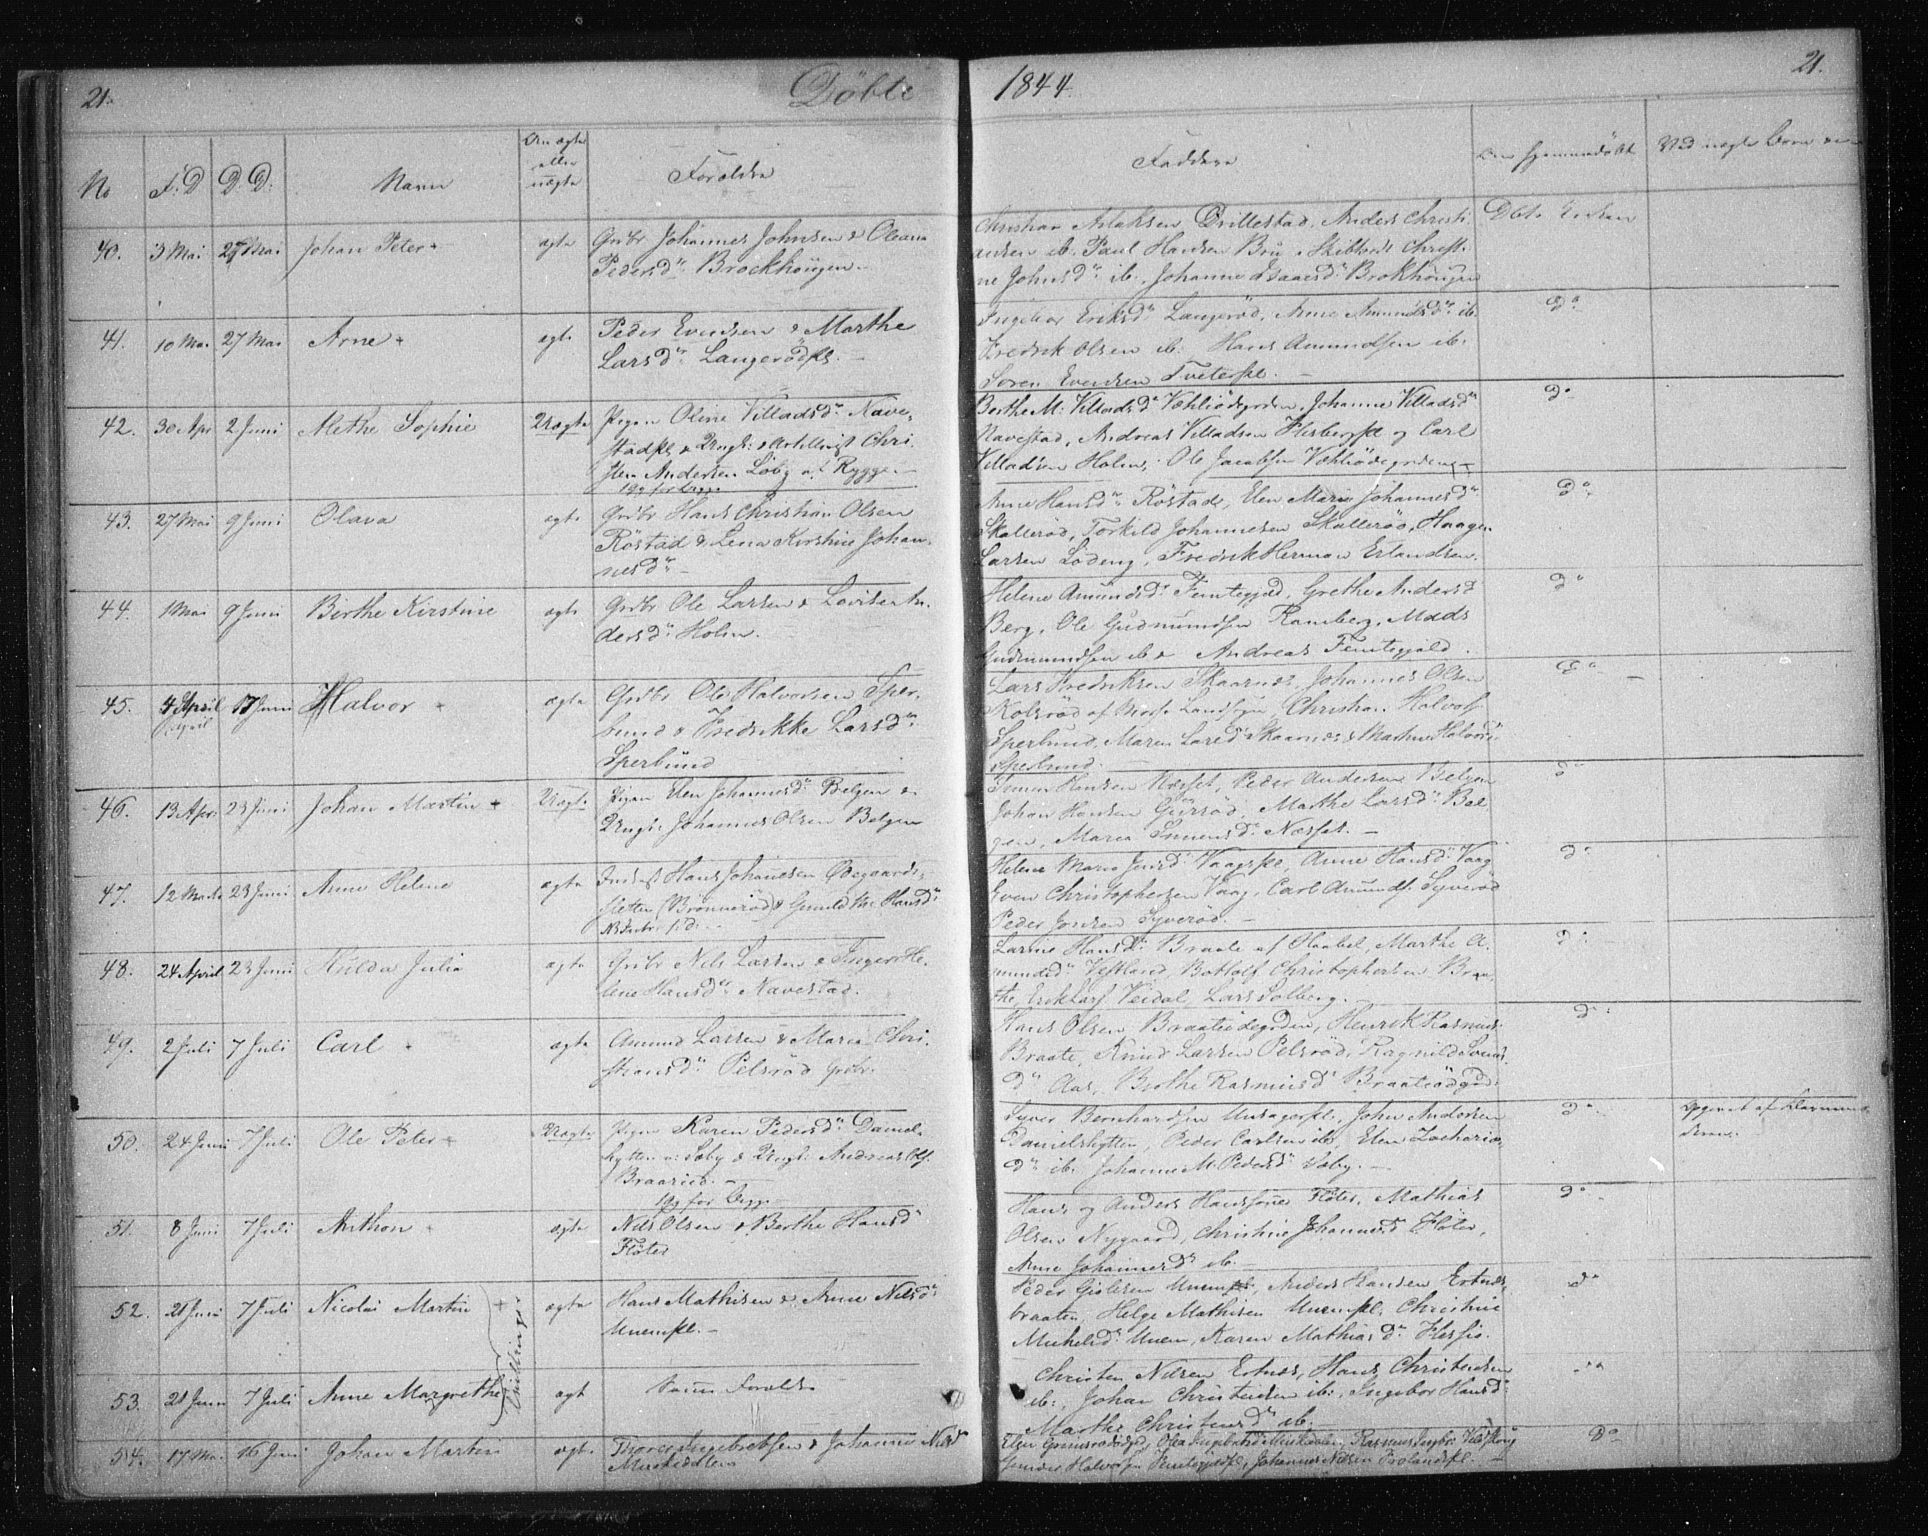 21.
Döbte
1844.
21.
No
F. D
D. D.
Navn
Om ægte
eller
uægte
Forældre
Faddere
Om hjemmedöbt
40. 3 Mai 27 Mai Johan Peter ægte Grdbr Johannes Johnsen & Oleana
Pedersdr. Brockhougen
Christian Aslaksen Grillestad, Anders Christi
ansen ib. Paul Hansen Brü, Christi
ne Johnsdr. ib. Johanne Isaacsdr. Brokhougen
41. 10 Mai 27 Mai Arne ægte Peder Evensen & Marthe
Larsdr. Langerödpl.
Ingebor Eriksdr. Langeröd, Anne Amundsdr. ib.
Fredrik Olsen ib. Hans Amundsen ib.
Soren Evensen Tvetepl.
Do
42. 30 Apr 2 Juni Methe Sophie Uægte Pigen Oline Villadsdr. Nave-
stadpl & Ungk: Chri
sten Andersen Löby af Rygge
1ste for begge
Berthe M. Villadsdr. Johanne Villadsdr.
Navestad, Andreas Villadsen og Carl
Villadsen Holm, Ole Jacobsen
Do
43. 27 Mai 9 Juni Olava ægte Grdbr Hans Christian Olsen
Röstad & Lena Kirstine Johan-
nesdr.
Anne Hansdr. Röstad, Elen Maria Johannesdr.
Skalleröd, Torkild Johannesen Skalleröd, Haagen
Larsen Lödeng, Fredrik Herman Erlandsen.
Do
44. 1 Mai 9 Juni Birthe Kirstine ægte Grdbr Ole Larsen & Lovise An-
dersdr. Holm.
Helene Amundsdr. Femtegjeld, Grethe Andersd
Berg, Ole Gudmundsen Ramberg, Mads
Gudmundsen ib & Andreas Femtegjeld.
Do
45. 4 April 17 Juni Halvor ægte Grdbr Ole Halvorsen Sper-
bund & Fredrikke Larsdr.
Sperbund
Lars Fredriksen Skaarnes, Johannes Olsen
Kolsröd af Moss Landsogn, Christian Halvors
Sperbund, Maren Larsd Skaarnes & Marthe Halvors
Sperbund.
Do
46. 13 Apr. 23 Juni Johan Martin Uægte Pigen Elen Johannesdr. Belgen &
Ungk. Johannes Olsen Belgen
Simen Hansen Næsset, Peder Andersen Belgen
Johan Hansen Guröd, Marthe Larsdr. Bel
gen, Maria Simensdr. Næsset.
Do
47. 12 Marts 23 Juni Anne Helene ægte Inds Hans Johannesen Ödegaards-
sletten (Brönneröd) & Gunild Hansdr.
Helene Maria Jensd Vaagspl, Anne Hansd Vaag
Even Christophersen Vaag, Carl Amunds. Syveröd
Peder Jonsen Syveröd.
Do
48. 24 April 23 Juni Hulda Julia ægte Grdbr Nils Larsen & Ingeor He-
lene Hansdr. Navestad.
Larine Hansdr. Braate af Haabel, Marthe A-
mundsd Vestlund, Botholf Christophersen Braa-
the, Erik Lars Veidal, Lars Solberg.
Do
49. 2 Juli 7 Juli Carl ægte Amund Larsen & Maria Chri-
stiansdr. Pelsröd Grdbr.
Hans Olsen Braateödegrden, Henrik Rasmus.
Braate, Knud Larsen Pelsröd, Ragnild Svens
dr. Aas, Berthe Rasmusd Braateödegrd
Do
50. 24 Juni 7 Juli Ole Peter Uægte Pigen Karen Pedersdr. Daniel-
hytten v. Soby & Ungk. Andreas Ols.
Braarud.
1ste for begge
Syver Bernhardsen John Andersen
Danielshytten, Peder Carlsen ib, Elen Zacharias
dr. ib. Johanne M. Pedersd Soby.
Do
Opgivet af
51. 8 Juni 7 Juli Anthon ægte Nils Olsen & Berthe Hansd
Flöter
Hans og Anders Hanssönne Flöter, Mathias
Olsen Nygaard, Christine Johannesd Flöter,
Anne Johannesd ib.
Do
52. 21 Juni 7 Juli Nicolai Martin ægte Hans Mathisen & Anne Nilsdr.
Unempl.
Tvillinger
Peder Unempl, Anders Hansen Ertnes-
braaten, Helge Mathisen Unempl. Christine
Michelsd. Unem, Karen Mathiasdr.
Do
53. 21 Juni 7 Juli Anne Margrethe ægt Samme Forældre
Christen Nilsen Ertnes, Hans Christensen
ib., Johan Christensen ib., Ingebor Hansd.
Marthe Christensdr. ib.
54. 17 Mai 16 Juni Johan Martin ægte Thorer Ingebretsen & Johanne Nilsd
Mustedalen
Johannes Nilsen Frolandspl.
Do